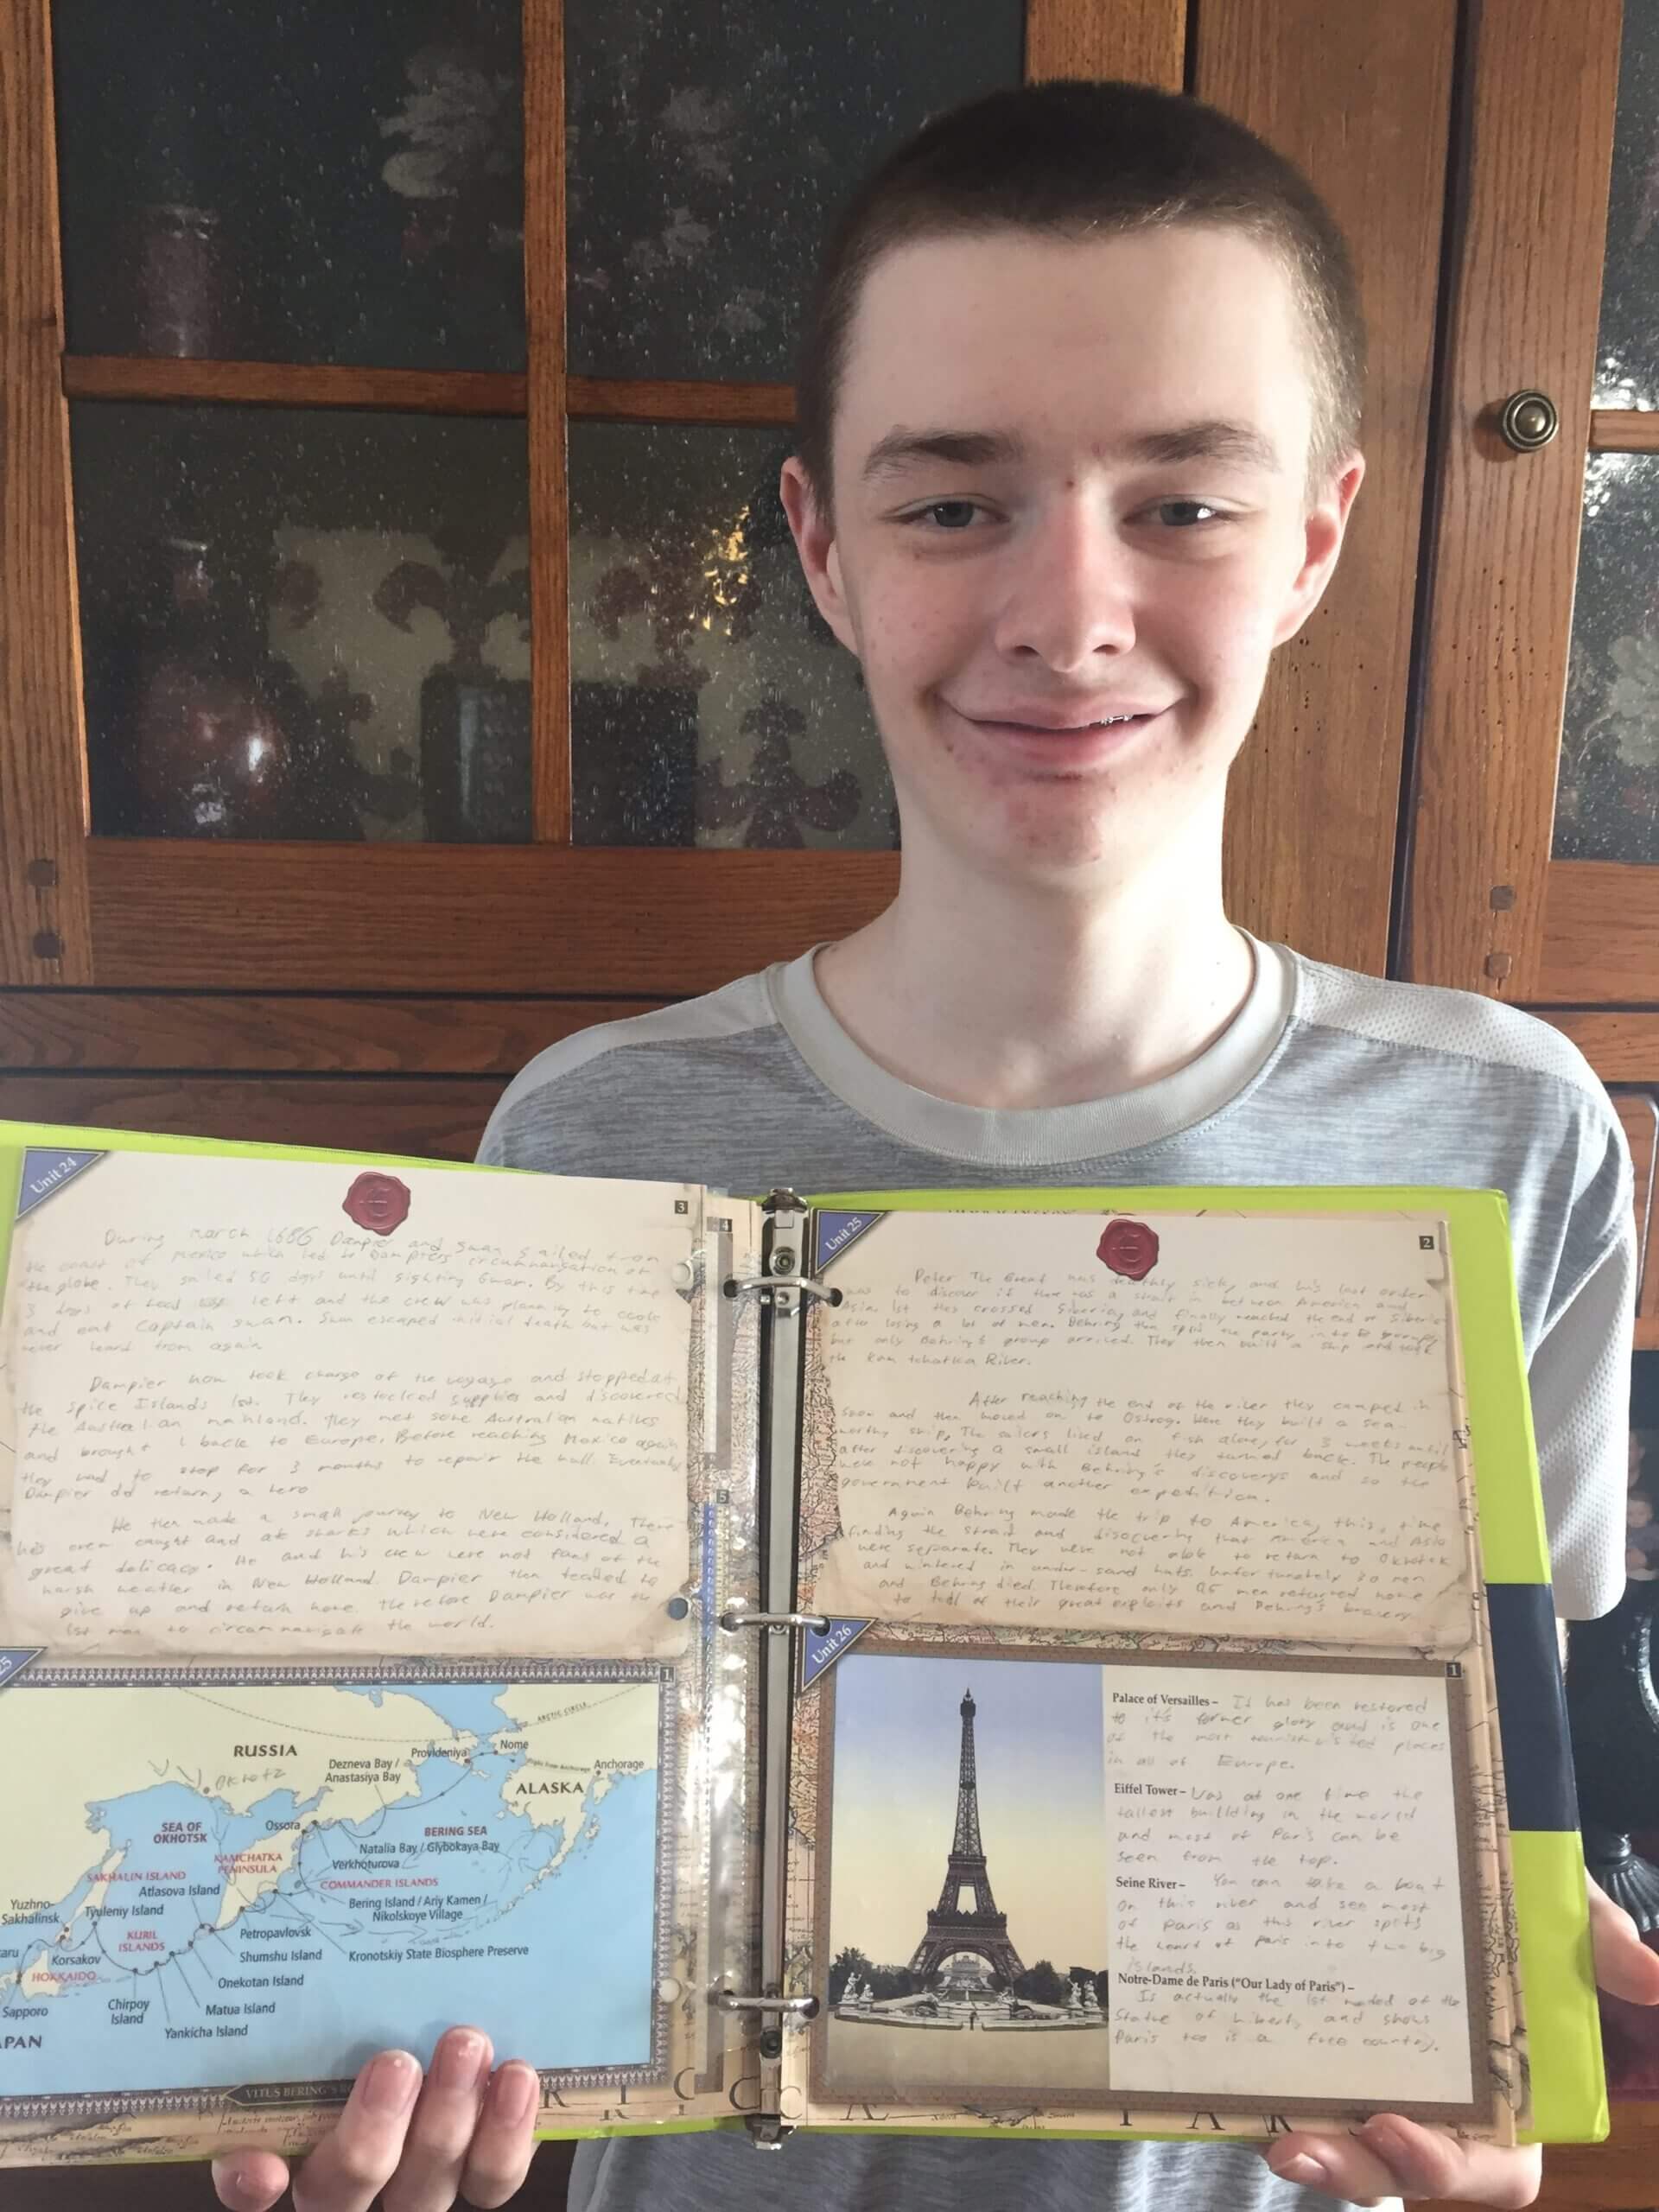 Unit 24
3
During March 1686 Dampier and Swan sailed from
the coast of Mexico which led to Dampiers circumnavigation of
the globe. They sailed 50 days until sighting Gwar. By this time
3 days of food left and the crew was planning to cook
and eat Captain Swan. Swan escaped initial death but was
never heard from again
Dampier now took charge of the voyage and stopped at
the Spice Islands 1st. They restocked supplies and discovered
the Australian mainland. They met some Australian natives
and brought 1 back to Europe. Before reaching Mexico again
they had to stop for 3 months to repair the hull. Eventually
Dampier did return, a hero
He then made a small journey to New Holland. There
he even caught and ate sharks which were considered a
great delicacy. He and his crew were not fans of the
harsh weather in New Holland. Dampier then decided to
give up and return home. Therefore Dampier was the
1st man to circumnavigate the world.
4
5
25
1
RUSSIA
Okhotz
ARCTIC CIRCLE
Provideniya
Nome
Dezneva Bay /
Anastasiya Bay
Anchorage
ALASKA
SEA OF
OKHOTSK
Ossora
BERING SEA
Natalia Bay / Glybokaya Bay
KAMCHATKA
PENINSULA
Verkhoturova
SAKHALIN ISLAND
COMMANDER ISLANDS
Atlasova Island
Bering Island / Ariy Kamen /
Nikolskoye Village
Yuzhno-
Sakhalinsk
Tyuleniy Island
Petropavlovsk
KURIL
ISLANDS
Shumshu Island
Kronotskiy State Biosphere Preserve
Korsakov
HOKKAIDO
Onekotan Island
Sapporo
Chirpoy
Island
Matua Island
Yankicha Island
PAN
VITUS BERING'S
Unit 25
2
Peter The Great was deathly sick, and his last order
was to discover if there was a strait in between America and
Asia. 1st they crossed Siberia, and finally reached the end of Siberia
after losing a lot of men. Behring then split the party into groups
but only Behring's group arrived. They then built a ship and took
the Kamtchatka River.
After reaching the end of the river they camped in
snow and then moved on to Ostrog. Here they built a sea-
worthy ship. The sailors lived on fish alone, for 3 weeks until
after discovering a small island they turned back. The people
were not happy with Behring's discoverys and so the
government built another expedition.
Again Behring made the trip to America, this time
finding the strait and discovering that America and Asia
were separate. They were not able to return to Okhotsk
and wintered in under-sand huts. Unfortunately 30 men
and Behring died. Therefore only 45 men returned home
to tell of their great exploits and Behring's bravery.
Unit 26
1
Palace of Versailles – It has been restored
to it's former glory and is one
of the most tourist visited places
in all of Europe.
Eiffel Tower – Was at one time the
tallest building in the world
and most of Paris can be
seen from the top.
Seine River – You can take a boat
on this river and see most
of Paris as this river splits
the heart of Paris into two big
islands.
Notre-Dame de Paris ("Our Lady of Paris") –
Is actually the 1st model of the
Statue of Liberty and shows
Paris too is a free country.